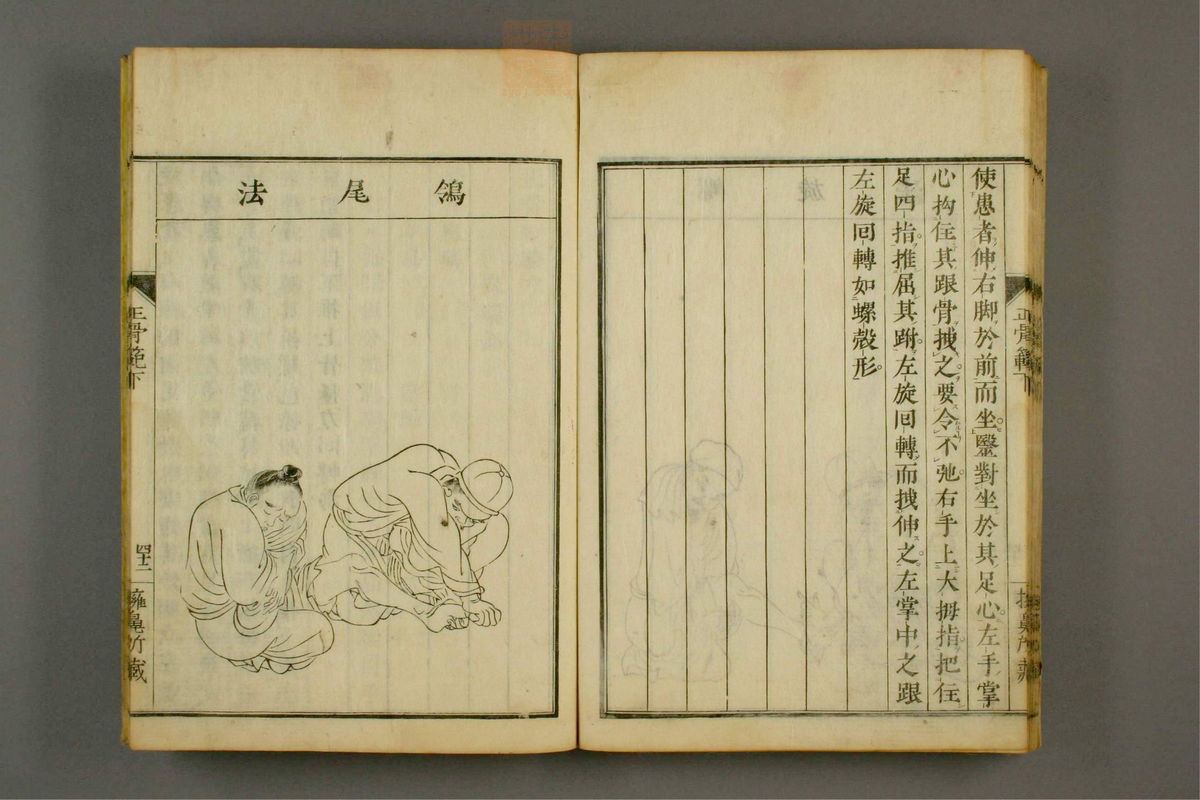 使患者伸右脚於前而坐毉對坐於其足心左手掌
心抅住其跟骨拽之要令不弛右手上大拇指把住
足四指推屈其跗左旋囘轉而拽伸之左掌中之跟
左旋囘轉如螺殼形
正骨範下
鴿尾法
正骨範下
四十二
擁鼻所藏